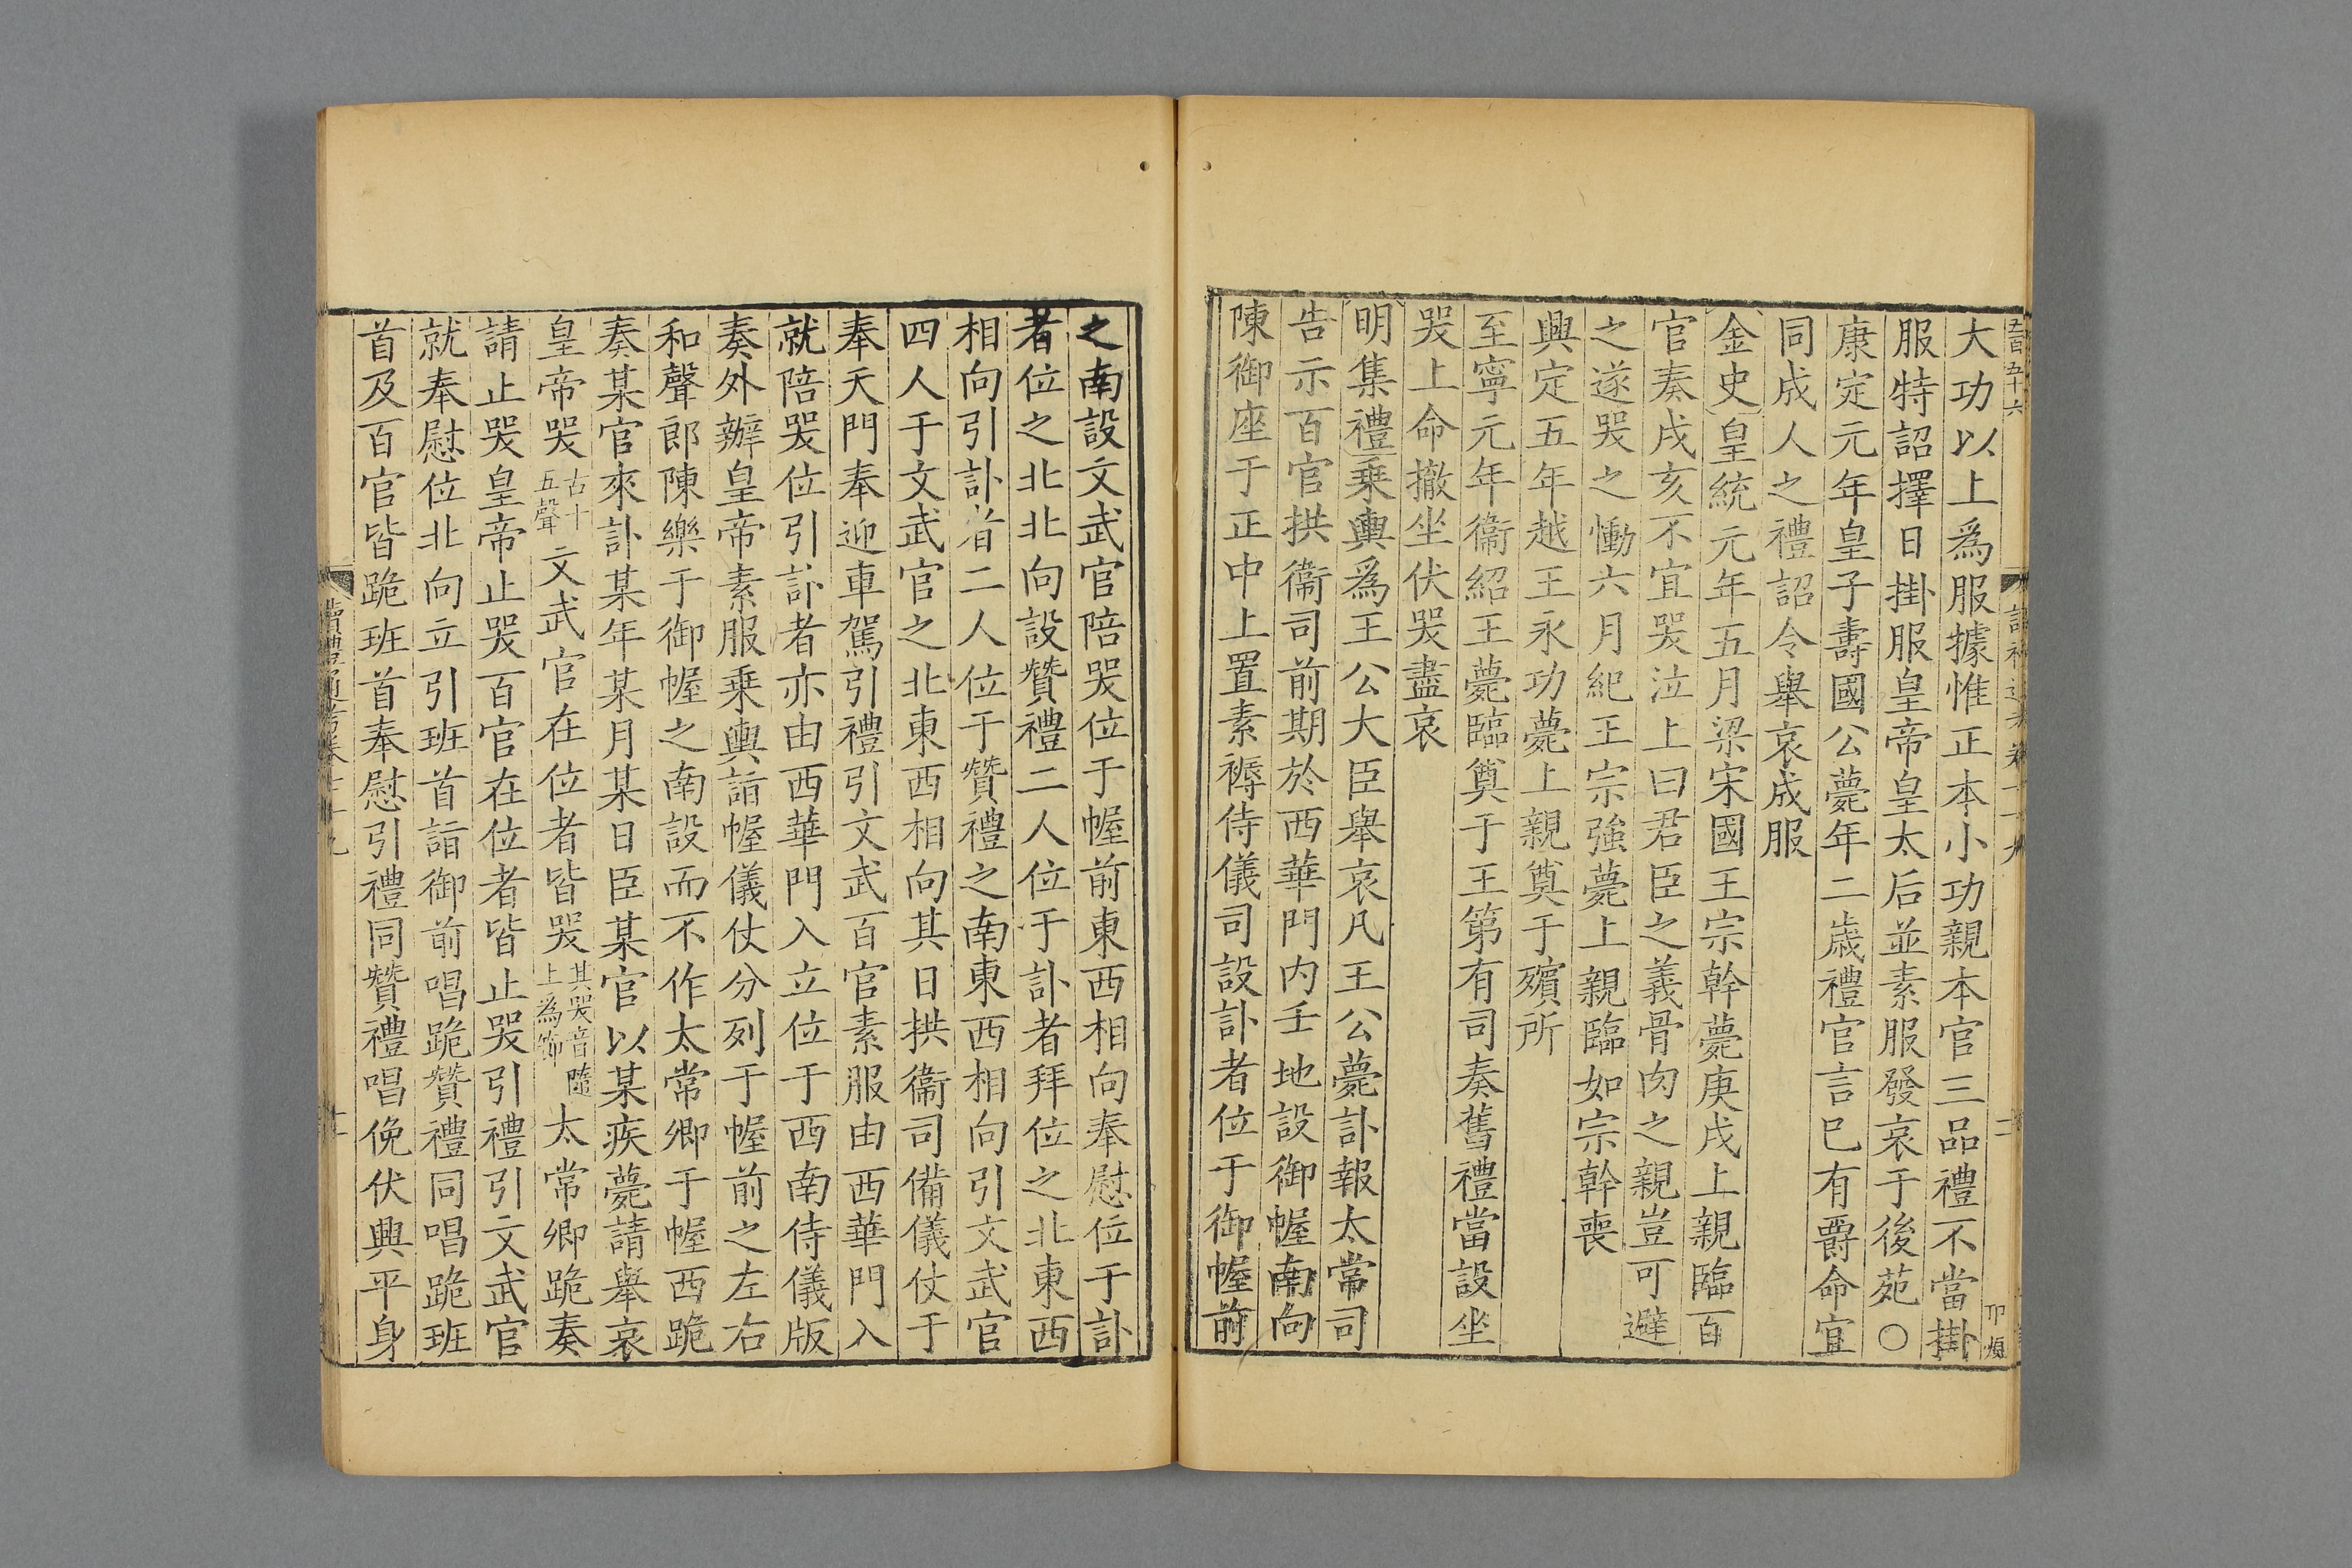 大功以上爲服據惟正本小功親本官三品禮不當掛
服特詔擇日掛服皇帝皇太后並素服發哀于後苑○
康定元年皇子壽國公薨年二歳禮官言巳有爵命宜
同成人之禮詔令舉哀成服
金史皇統元年五月梁宋國王宗幹薨庚戌上親臨百
官奏戌亥不宜哭泣上曰君臣之義骨肉之親豈可避
之遂哭之慟六月紀王宗強薨上親臨如宗幹喪
興定五年越王永功薨上親奠于殯所
至寧元年衞紹王薨臨奠于王第有司奏舊禮當設坐
哭上命撤坐伏哭盡哀
明集禮乗輿爲王公大臣舉哀凡王公薨訃報太常司
告示百官拱衞司前期於西華門内壬地設御幄南向
陳御座于正中上置素褥侍儀司設訃者位于御幄前
之南設文武官陪哭位于幄前東西相向奉慰位于訃
者位之北北向設贊禮二人位于訃者拜位之北東西
相向引訃者二人位于贊禮之南東西相向引文武官
四人于文武官之北東西相向其日拱衞司備儀仗于
奉天門奉迎車駕引禮引文武百官素服由西華門入
就陪哭位引訃者亦由西華門入立位于西南侍儀版
奏外辦皇帝素服乗輿詣幄儀仗分列于幄前之左右
和聲郎陳樂于御幄之南設而不作太常卿于幄西跪
奏某官來訃某年某月某日臣某官以某疾薨請舉哀
皇帝哭古十五聲文武官在位者皆哭其哭音隨上為節太常卿跪奏
請止哭皇帝止哭百官在位者皆止哭引禮引文武官
就奉慰位北向立引班首詣御前唱跪贊禮同唱跪班
首及百官皆跪班首奉慰引禮同贊禮唱俛伏興平身